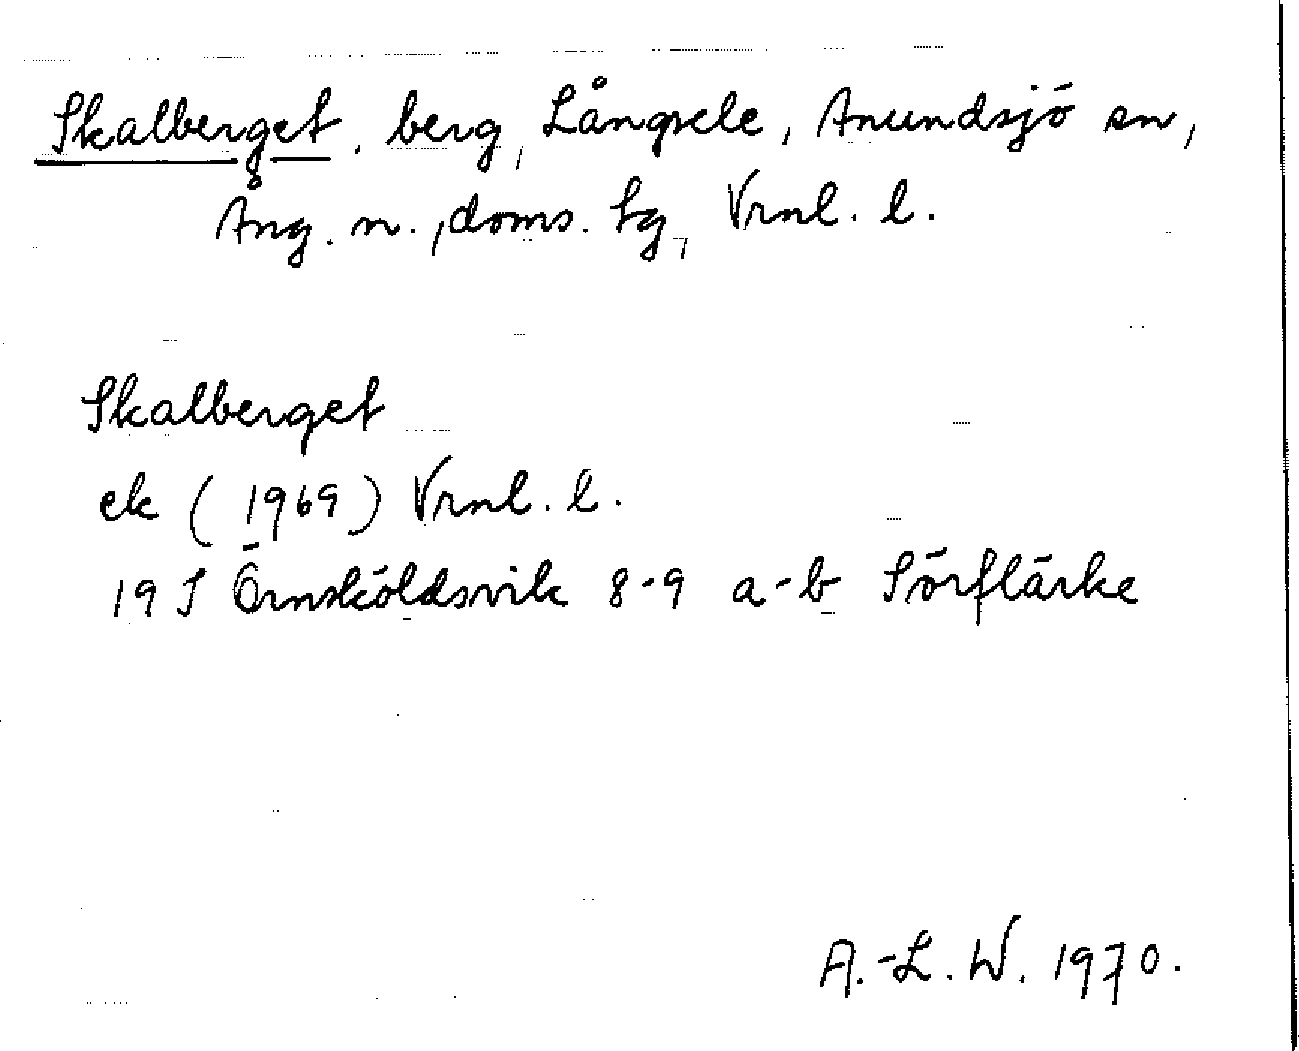 Skalberget, berg, Långsele, Anundsjö sn,
Ång. n., doms. hg, Vrnl. l.
Skalberget
ek (1969) Vrnl. l.
19 J Örnsköldsvik 8-9 a-b Sörflärke
A.-L. W. 1970.